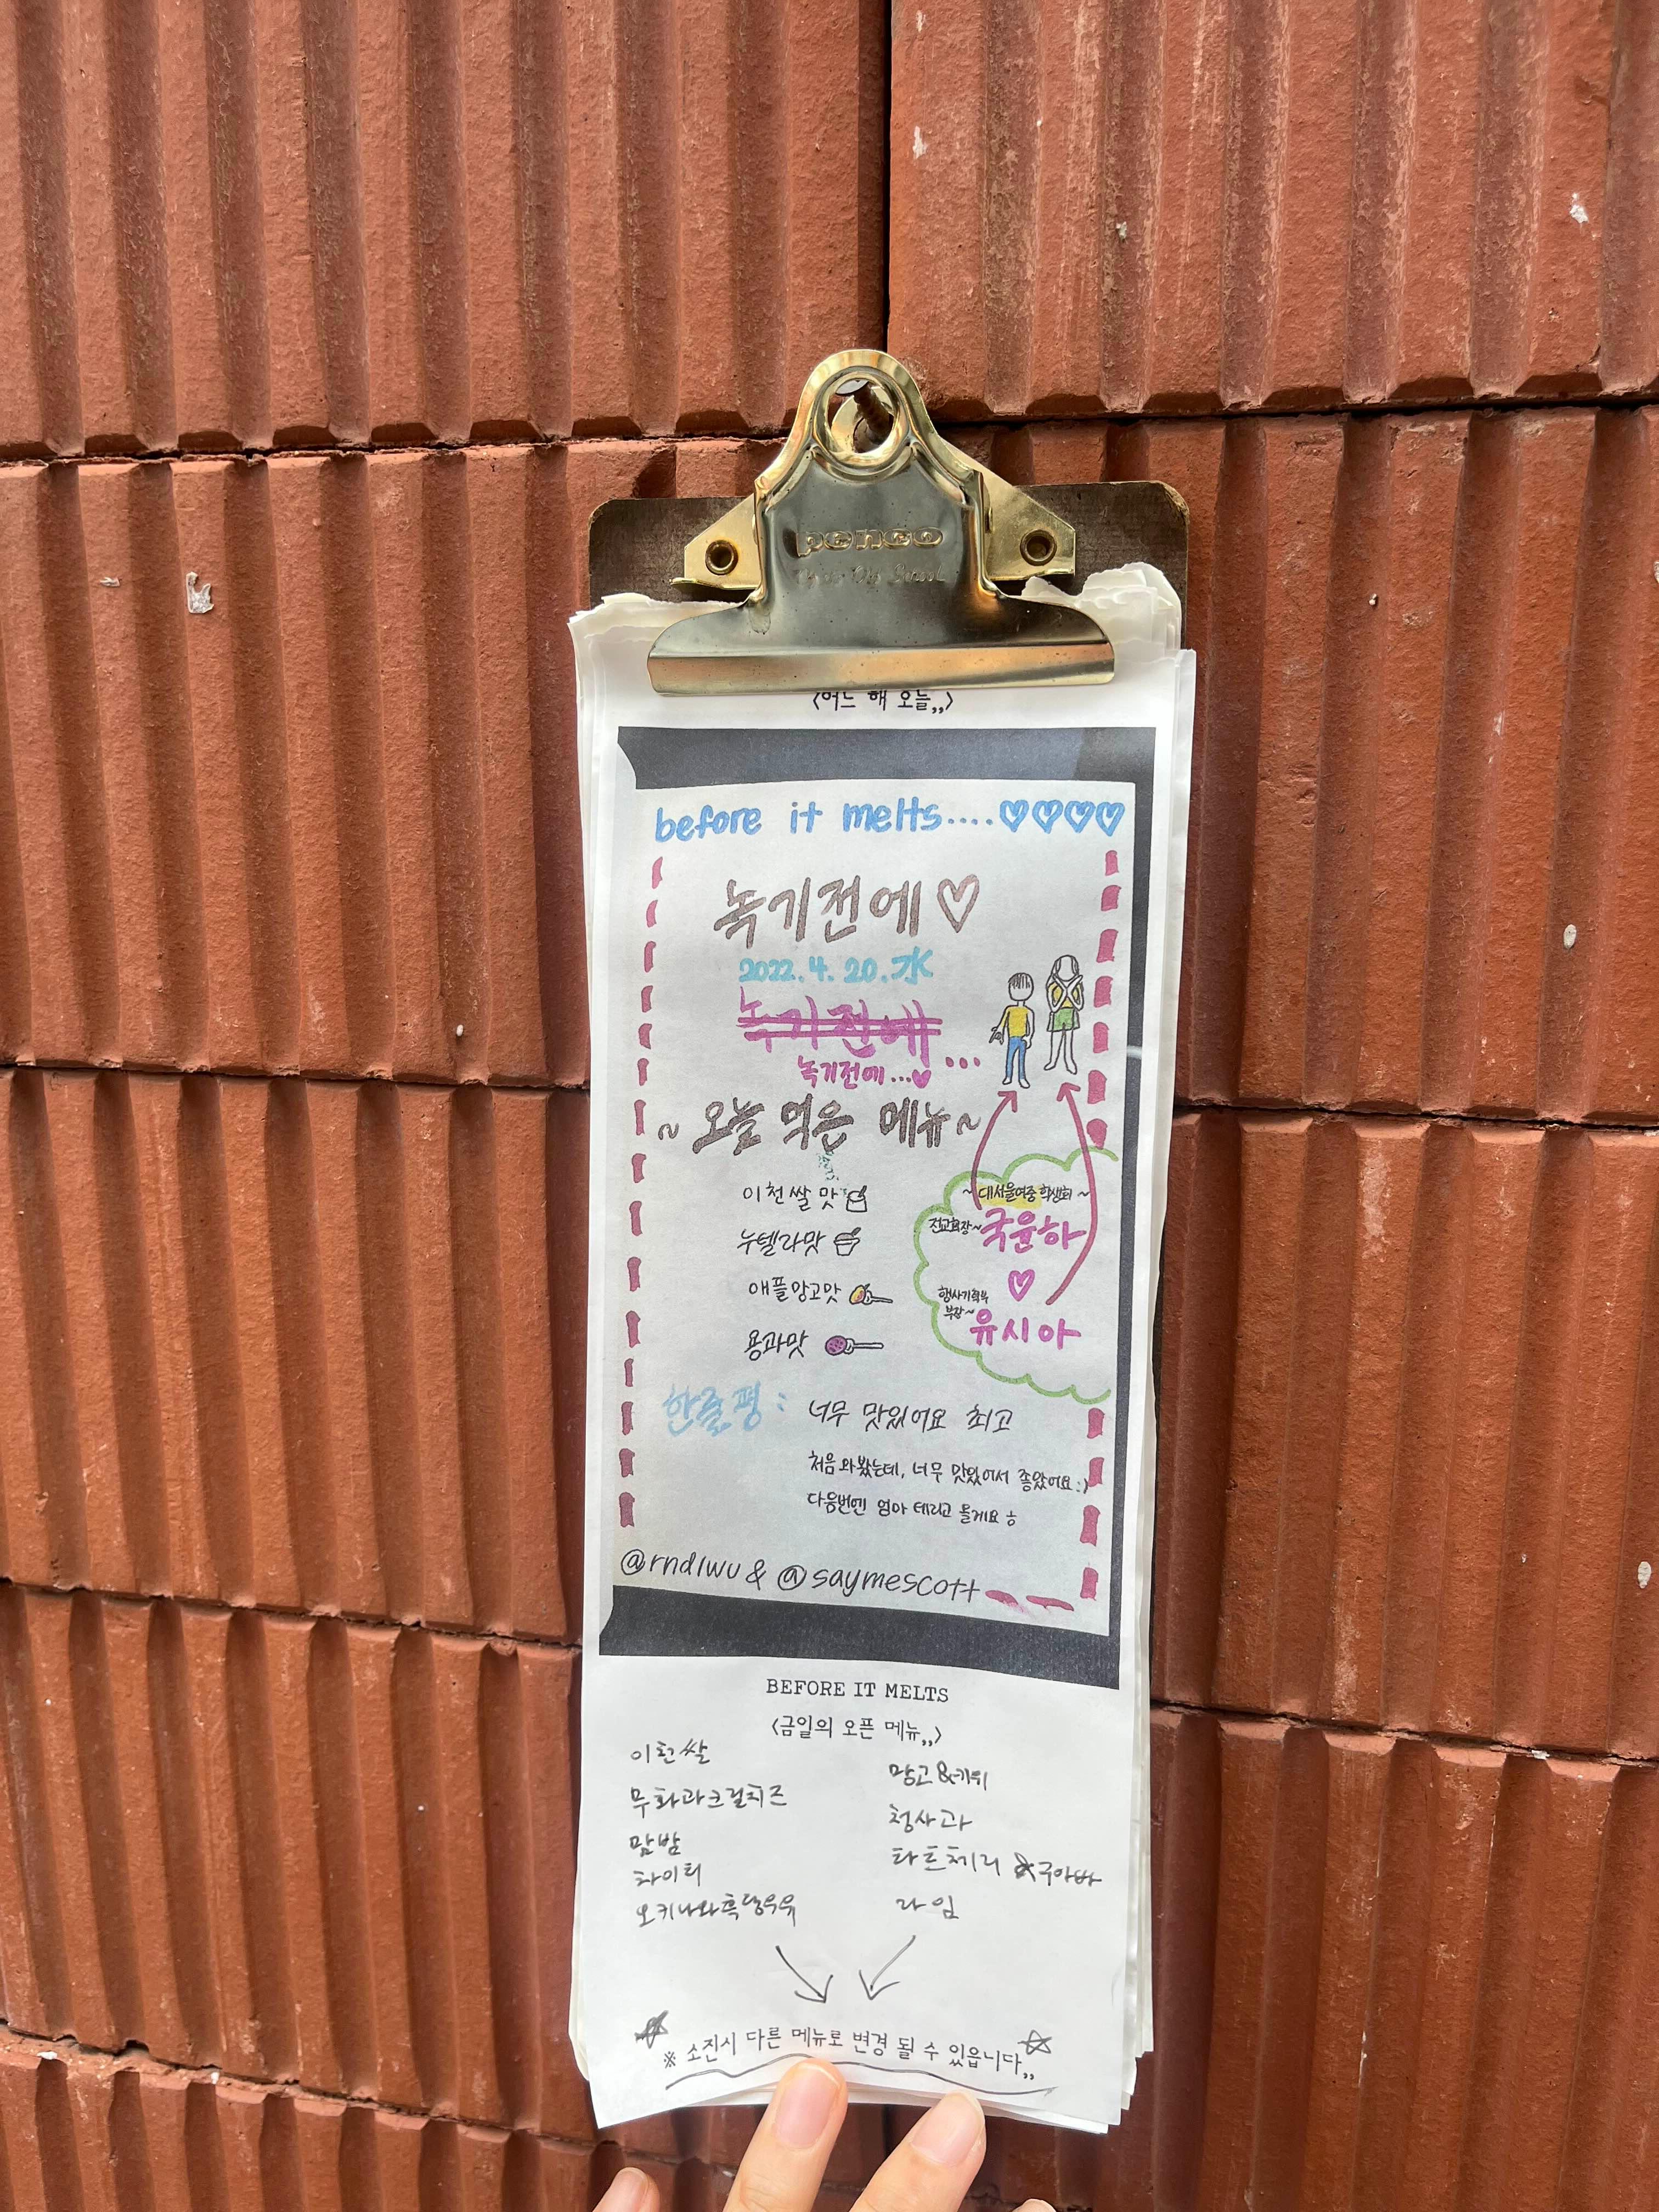 penco
<어느 해 오늘,,>
before it melts....♡♡♡♡
녹기전에♡
2022.4.20.水
녹기전에...
녹기전에...♥
~오늘 먹은 메뉴~
이천쌀맛
누텔라맛
애플망고맛
용과맛
~대서울여중 학생회~
전교회장~국윤하
♡
행사기획부
부장~유시아
한줄평: 너무 맛있어요 최고
처음 와봤는데, 너무 맛있어서 좋았어요:)
다음번엔 엄마 데리고 올게요 ㅎ
@rndlwu & @saymescott
BEFORE IT MELTS
<금일의 오픈 메뉴,,>
이천쌀
무화과크림치즈
맘밤
차이티
오키나와흑당우유
망고&키위
청사과
타트체리 ☆구아바
라임
※ 소진시 다른 메뉴로 변경 될 수 있읍니다,,